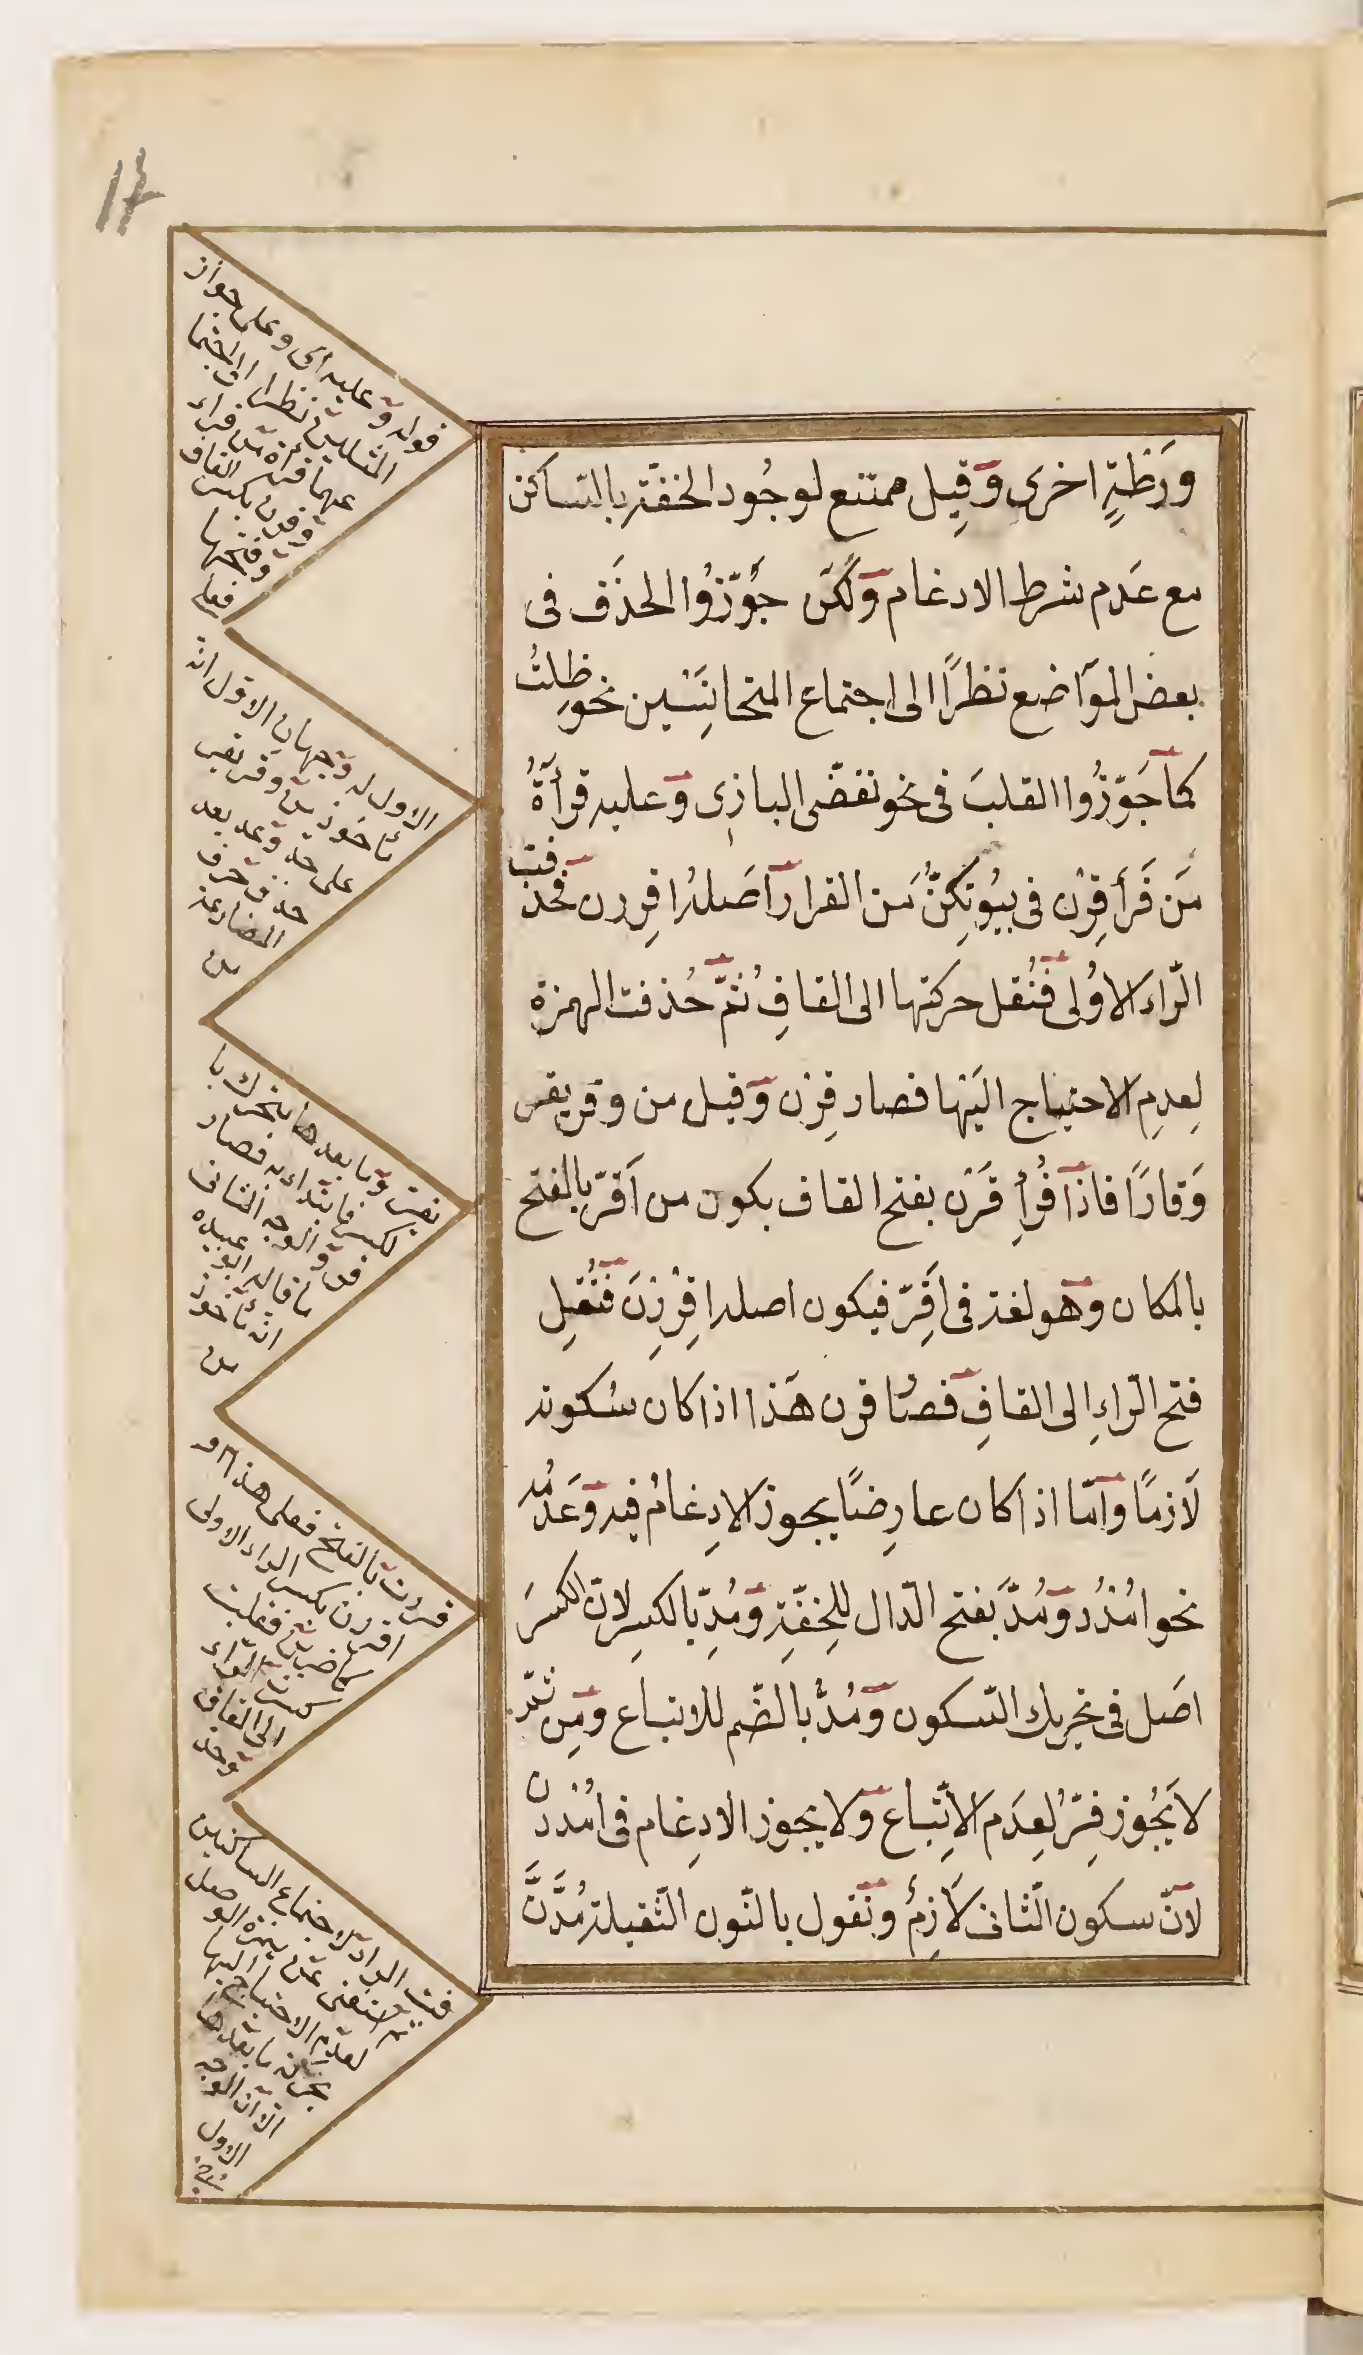 وَرَطْبَةٍ اخرى وَقِيل ممتنع لوجُود الخفّة بالسّاكن
مع عَدم شرط الادغام وَلٰكن جَوّزُوا الحذَف فى
بعض الموَاضِع نظرًا الى اجتماع المتجانِسَين نحو ظِلتُ
كمَا جَوّزُوا القلبَ فى نحو تقضّى البازِى وَعليه قرأةُ
مَن قَرأ قِرْن فى بيُوتِكنَّ مَن القرار اَصَله اقرِرن فحُذفت
الرّاء الاُولى فَنُقل حركتها الى القافِ ثمَّ حُذفت الهمزة
لِعدِمِ الاحتياج الَيْها فصار قِرْن وَقيل من وقر يقر
وَقارًا فاذَا قُرأِ قَرْن بفتح القاف يكون من اَقرّ بالفتح
بالمكان وَهو لغة فى اَقِرّ فيكون اصله اِقرَرْنَ فَنُقِل
فتح الرّاءِ الى القافِ فصَار قرن هَذا اذا كان سُكونه
لَازمًا وَامّا اذا كان عارِضًا يجوز الادِغامُ فيه وَعَدمُه
نحو امْدُد وَمُدَّ بفتح الدّال لِلخِفّةِ وَمُدِّ بالكسِر لانّ الكسَر
اصَل فى تحريك السّكون وَمُدُّ بالضّم للاتباع وَمِن ثمّ
لاَ يَجُوز فِرُّ لِعدَم الاِتّباع وَلا يجوز الادِغام فى امْددن
لانّ سكون الثّانى لاَزِمُ وَتقول بالنّون الثّقيلة مُدَّنَّ
قوله وَعليه أى وعلى جواز
المثلين نظرا الى اجتما
عهما قرأة من قراء
وقرن بكسر القاف
وفتحها
فعلى
الاول له وَجهان الاوّل انه
مأخوذ من وقر يقر
على حدّ وعد يعد
حذفت حرف
المضارعة
من
تقر وَما بعدها متحرك با
لكسر فابتداء به فصار
قرن والوجه الثانى
ما قاله ابو عبيده
انه مأخوذ
من
قررت بالفتح فعلى هذا
اقررن بكسر الراء الاولى
فنقلت
كسرة الراء
الى القاف
وحذ
فت الراء لاجتماع الساكنين
همزة الوصل
لعدم الاحتياج اليها
ما بعدها
الا ان الوجه
الاول